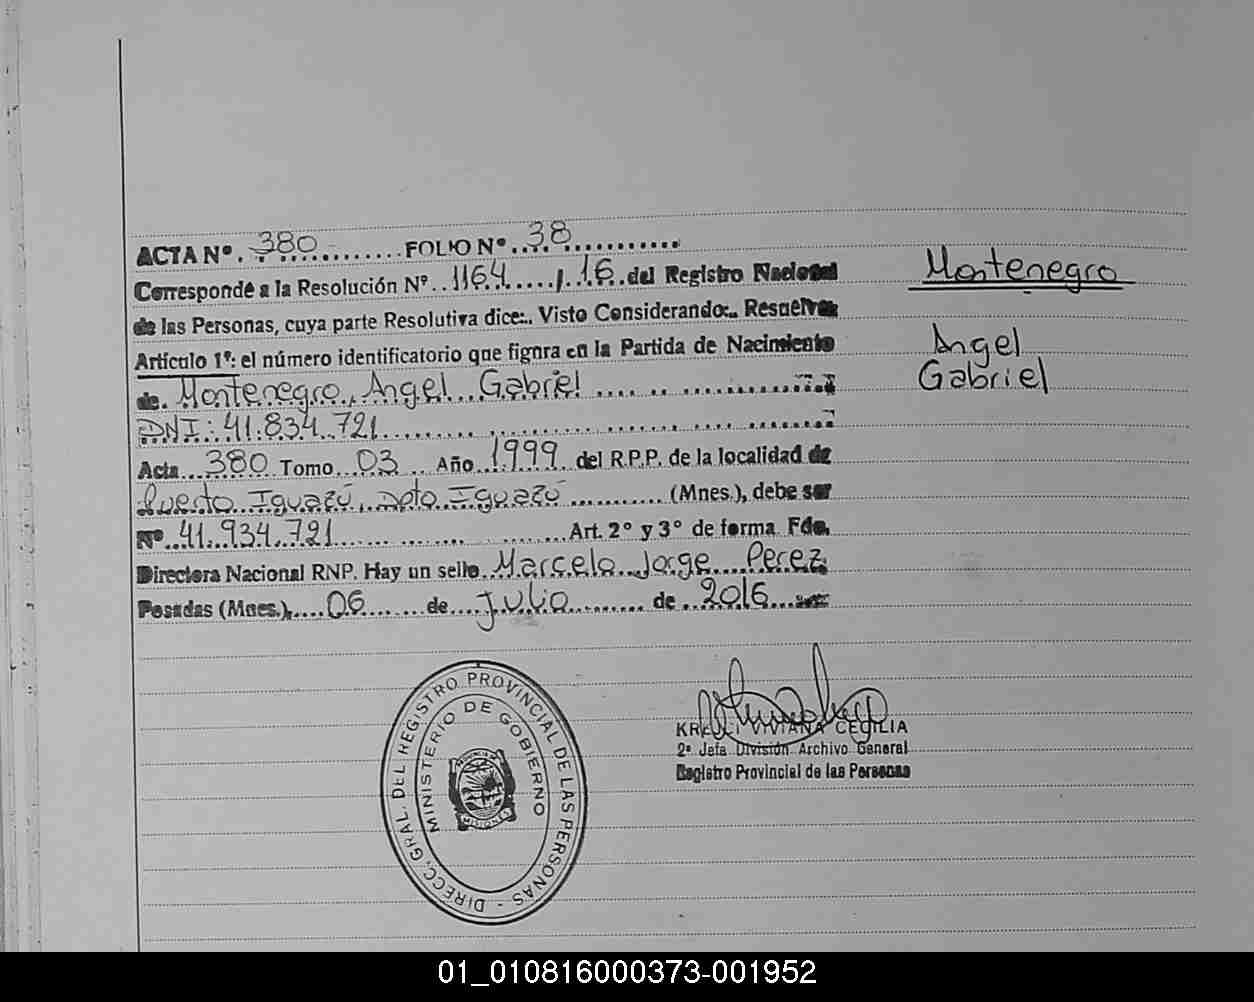 ACTA Nº. 380 FOLIO Nº 38
Corresponde a la Resolución Nº 1164 / 16 del Registro Nacional
de las Personas, cuya parte Resolutiva dice:. Visto Considerando:. Resuelve:
Artículo 1º: el número identificatorio que figura en la Partida de Nacimiento
de. Montenegro, Angel Gabriel
DNI: 41.834.721
Acta 380 Tomo 03 Año 1999 del R.P.P. de la localidad de
Puerto Iguazú, Dpto Iguazú (Mnes.), debe ser
Nº 41.934.721 Art. 2º y 3º de forma Fdo.
Directora Nacional RNP. Hay un sello Marcelo Jorge Perez
Posadas (Mnes.), 06 de Julio de 2016
Montenegro
Angel
Gabriel
DIRECC. GRAL. DEL REGISTRO PROVINCIAL DE LAS PERSONAS -
MINISTERIO DE GOBIERNO
MISIONES
VIVIANA CECILIA
2º Jefa División Archivo General
Registro Provincial de las Personas
01_010816000373-001952